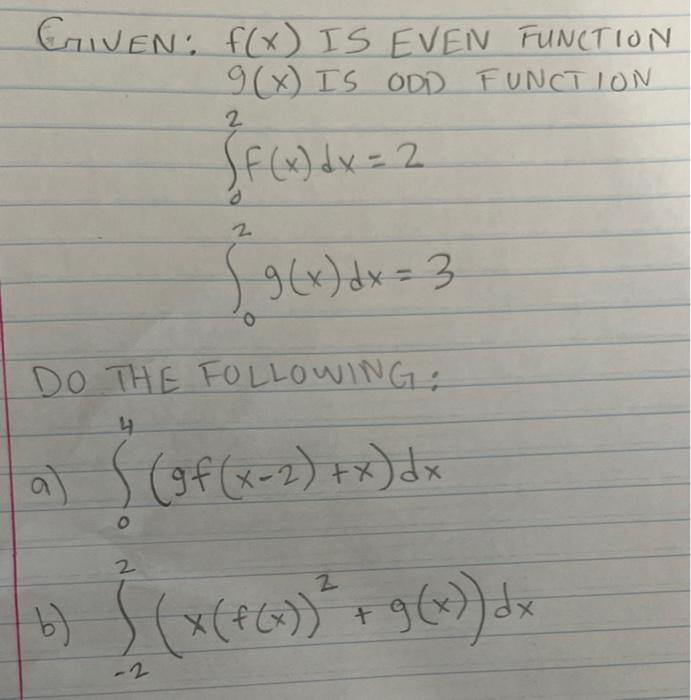 GIVEN: f(x) IS EVEN FUNCTION
g(x) IS ODD FUNCTION
∫₀² f(x) dx = 2
∫₀² g(x) dx = 3
DO THE FOLLOWING:
a) ∫₀⁴ (9f(x-2) + x) dx
b) ∫₋₂² (x(f(x))² + g(x)) dx